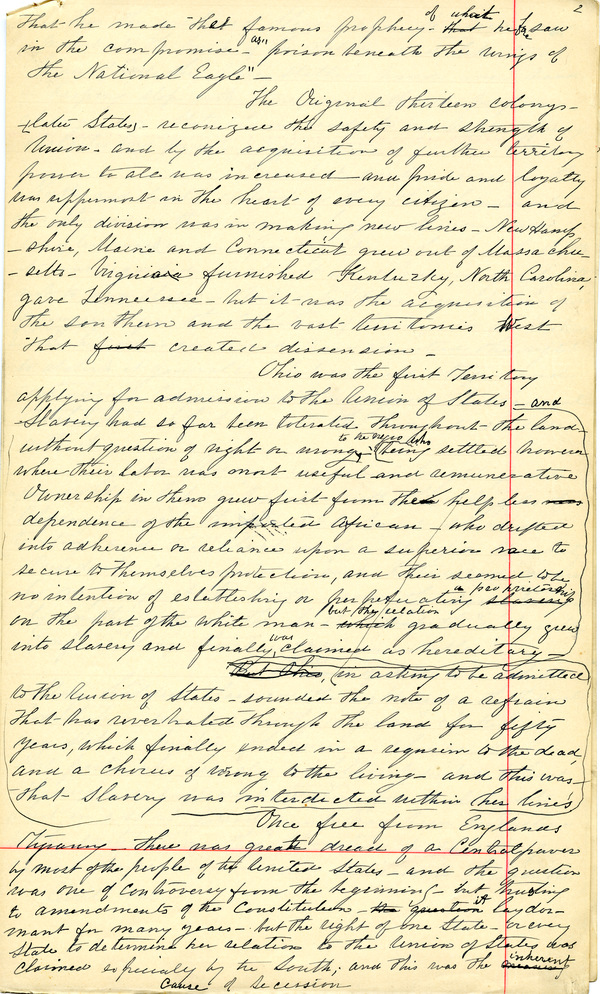 2
that he made that famous prophecy - of what that he foresaw
in the compromise - as "poison beneath the wings of
the National Eagle" -
The Original thirteen colonys -
(later States) - reconizeed the safety and strength of
Union - and by the acquisition of further territory
power to all was increased - and pride and loyalty
was uppermost in the heart of every citizen - and
the only division was in making new lines - New Hamp
- shire, Maine and Connecticut grew out of Massachu -
- setts - Virginia furnished Kentucky, North Carolina,
gave Tennessee - but it was the acquisition of
the southern and the vast territories West
that first created dissension -
Ohio was the first Territory
applying for admission to the Union of States - and
Slavery had so far been tolerated throughout the land
without question of right or wrong, - to the negro who being settled
where their labor was most useful and remunerative
Ownership in them grew first from the helpless
dependence of the imported African - who drifted
into adherence or reliance upon a superior race to
secure to themselves protection, and their seemed to be
no intention of establishing or perpetuating slavery a proprietorship
on the part of the white man - which but the relation gradually grew
into slavery and finally, was claimed as hereditary -
But Ohio, (in asking to be admitted
to the Union of States - sounded the note of a refrain
that has reverbrated through the land for fifty
years, which finally ended in a requeim to the dead
and a chorus of wrong to the living - and this was -
that slavery was interdicted within her lines
Once free from Englands
Tyranny - there was great dread of a Central power
by most of the people of the United States - and the question
was one of controversy from the beginning - but trusting
to amendments of the Constitution the question it lay dor -
mant for many years - but the right of one State - or every
State to determine her relation to the Union of States was
claimed especially by the South; and this was the inherent
cause of Secession